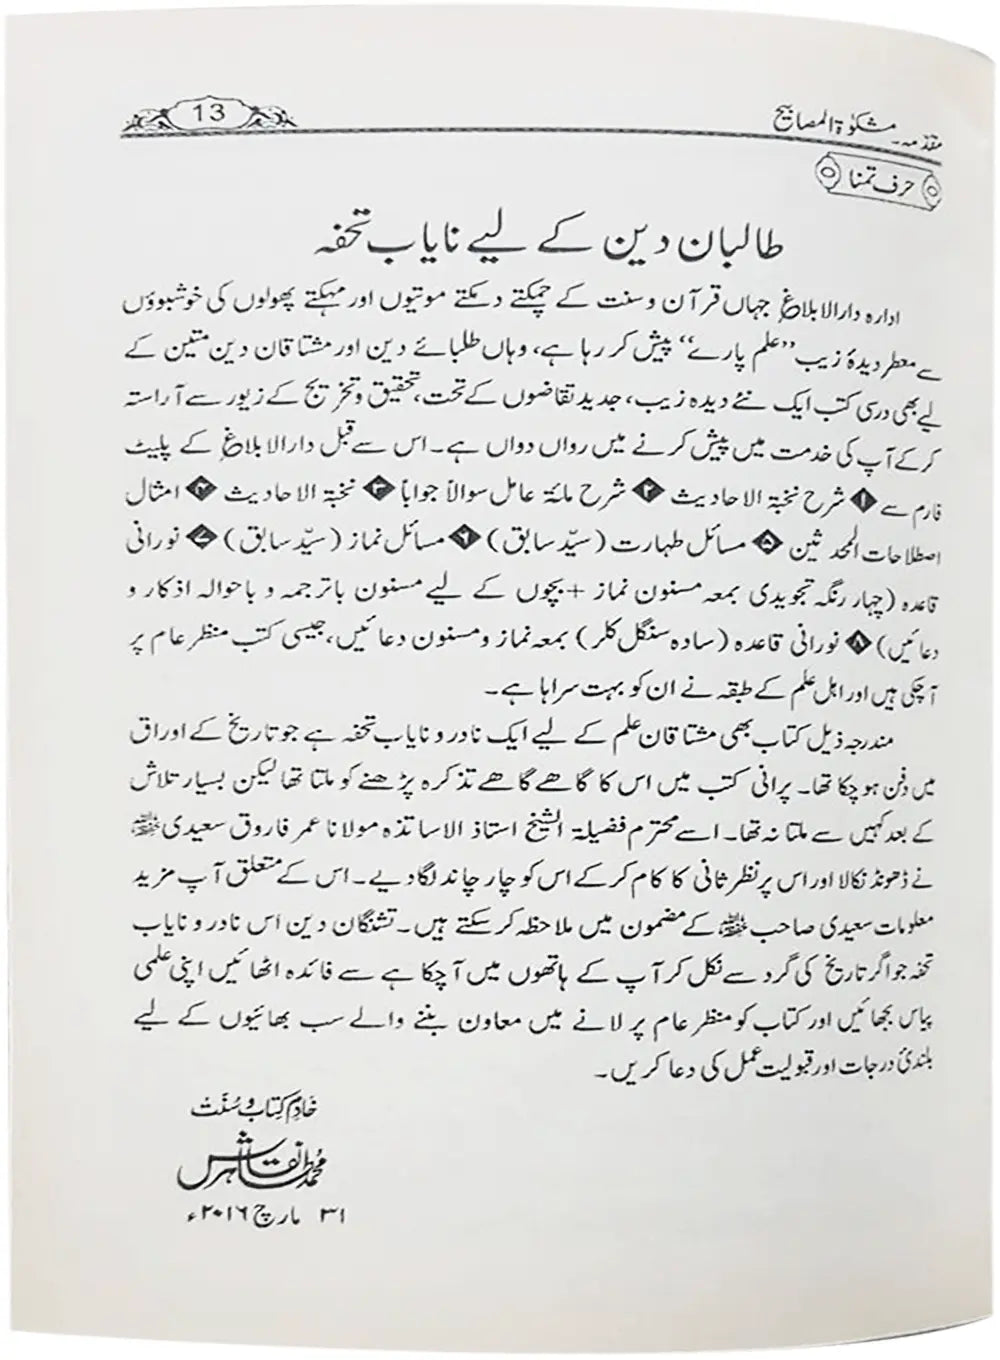 مقدمہ۔ مشکوٰۃ المصابیح
13
حرف تمنا
طالبان دین کے لیے نایاب تحفہ
ادارہ دارالابلاغ جہاں قرآن و سنت کے چمکتے دمکتے موتیوں اور مہکتے پھولوں کی خوشبوؤں
سے معطر دیدۂ زیب ’’علم پارے‘‘ پیش کر رہا ہے، وہاں طلبائے دین اور مشتاقان دین متین کے
لیے بھی درسی کتب ایک نئے دیدہ زیب، جدید تقاضوں کے تحت، تحقیق و تخریج کے زیور سے آراستہ
کر کے آپ کی خدمت میں پیش کرنے میں رواں دواں ہے۔ اس سے قبل دارالابلاغ کے پلیٹ
فارم سے ۱ شرح نخبۃ الاحادیث ۲ شرح مائۃ عامل سوالاً جواباً ۳ نخبۃ الاحادیث ۴ امثال
اصطلاحات المحدثین ۵ مسائل طہارت (سیّد سابق) ۶ مسائل نماز (سیّد سابق) ۷ نورانی
قاعدہ (چہار رنگہ تجویدی بمعہ مسنون نماز + بچوں کے لیے مسنون باترجمہ و باحوالہ اذکار و
دعائیں) ۸ نورانی قاعدہ (سادہ سنگل کلر) بمعہ نماز و مسنون دعائیں، جیسی کتب منظر عام پر
آ چکی ہیں اور اہل علم کے طبقہ نے ان کو بہت سراہا ہے۔
مندرجہ ذیل کتاب بھی مشتاقان علم کے لیے ایک نادر و نایاب تحفہ ہے جو تاریخ کے اوراق
میں دفن ہو چکا تھا۔ پرانی کتب میں اس کا گاھے گاھے تذکرہ پڑھنے کو ملتا تھا لیکن بسیار تلاش
کے بعد کہیں سے ملتا نہ تھا۔ اسے محترم فضیلۃ الشیخ استاذ الاساتذہ مولانا عمر فاروق سعیدی حفظہ اللہ
نے ڈھونڈ نکالا اور اس پر نظر ثانی کا کام کر کے اس کو چار چاند لگا دیے۔ اس کے متعلق آپ مزید
معلومات سعیدی صاحب حفظہ اللہ کے مضمون میں ملاحظہ کر سکتے ہیں۔ تشنگان دین اس نادر و نایاب
تحفہ جو اگر تاریخ کی گرد سے نکل کر آپ کے ہاتھوں میں آ چکا ہے سے فائدہ اٹھائیں اپنی علمی
پیاس بجھائیں اور کتاب کو منظر عام پر لانے میں معاون بننے والے سب بھائیوں کے لیے
بلندیٔ درجات اور قبولیت عمل کی دعا کریں۔
خادم کتاب و سنت
محمد طاہر نقاش
۳۱ مارچ ۲۰۱۶ء